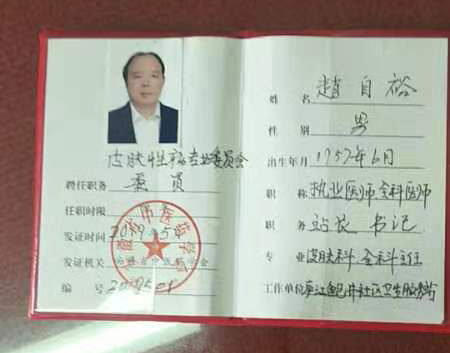 皮肤性病专业委员会
聘任职务 委员
任职时限
发证时间 2019.5
发证机关
编 号 2019501
姓 名 趙自裕
性 别 男
出生年月 1957年6月
职 称 执业医师全科医师
职 务 站长 书记
专 业 皮肤科.全科主任
工作单位 社区卫生服务站